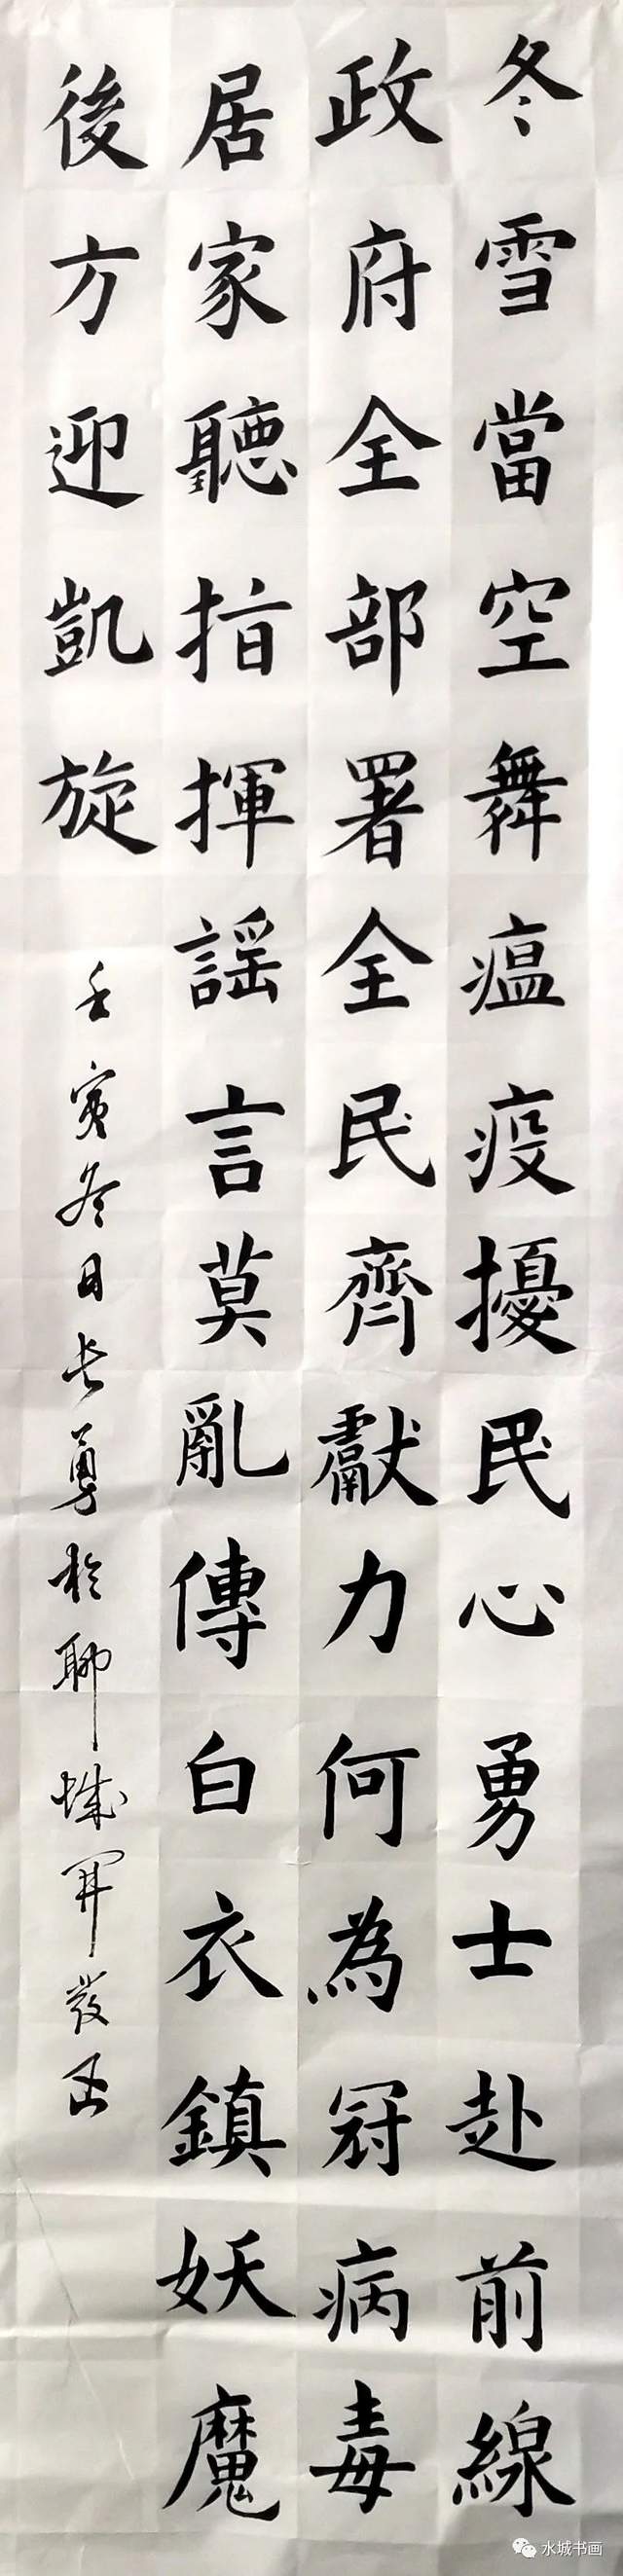 冬雪當空舞瘟疫擾民心勇士赴前線
政府全部署全民齊獻力何為冠病毒
居家聽指揮謠言莫亂傳白衣鎮妖魔
後方迎凱旋
壬寅冬日長勇於聊城開發區
水城书画